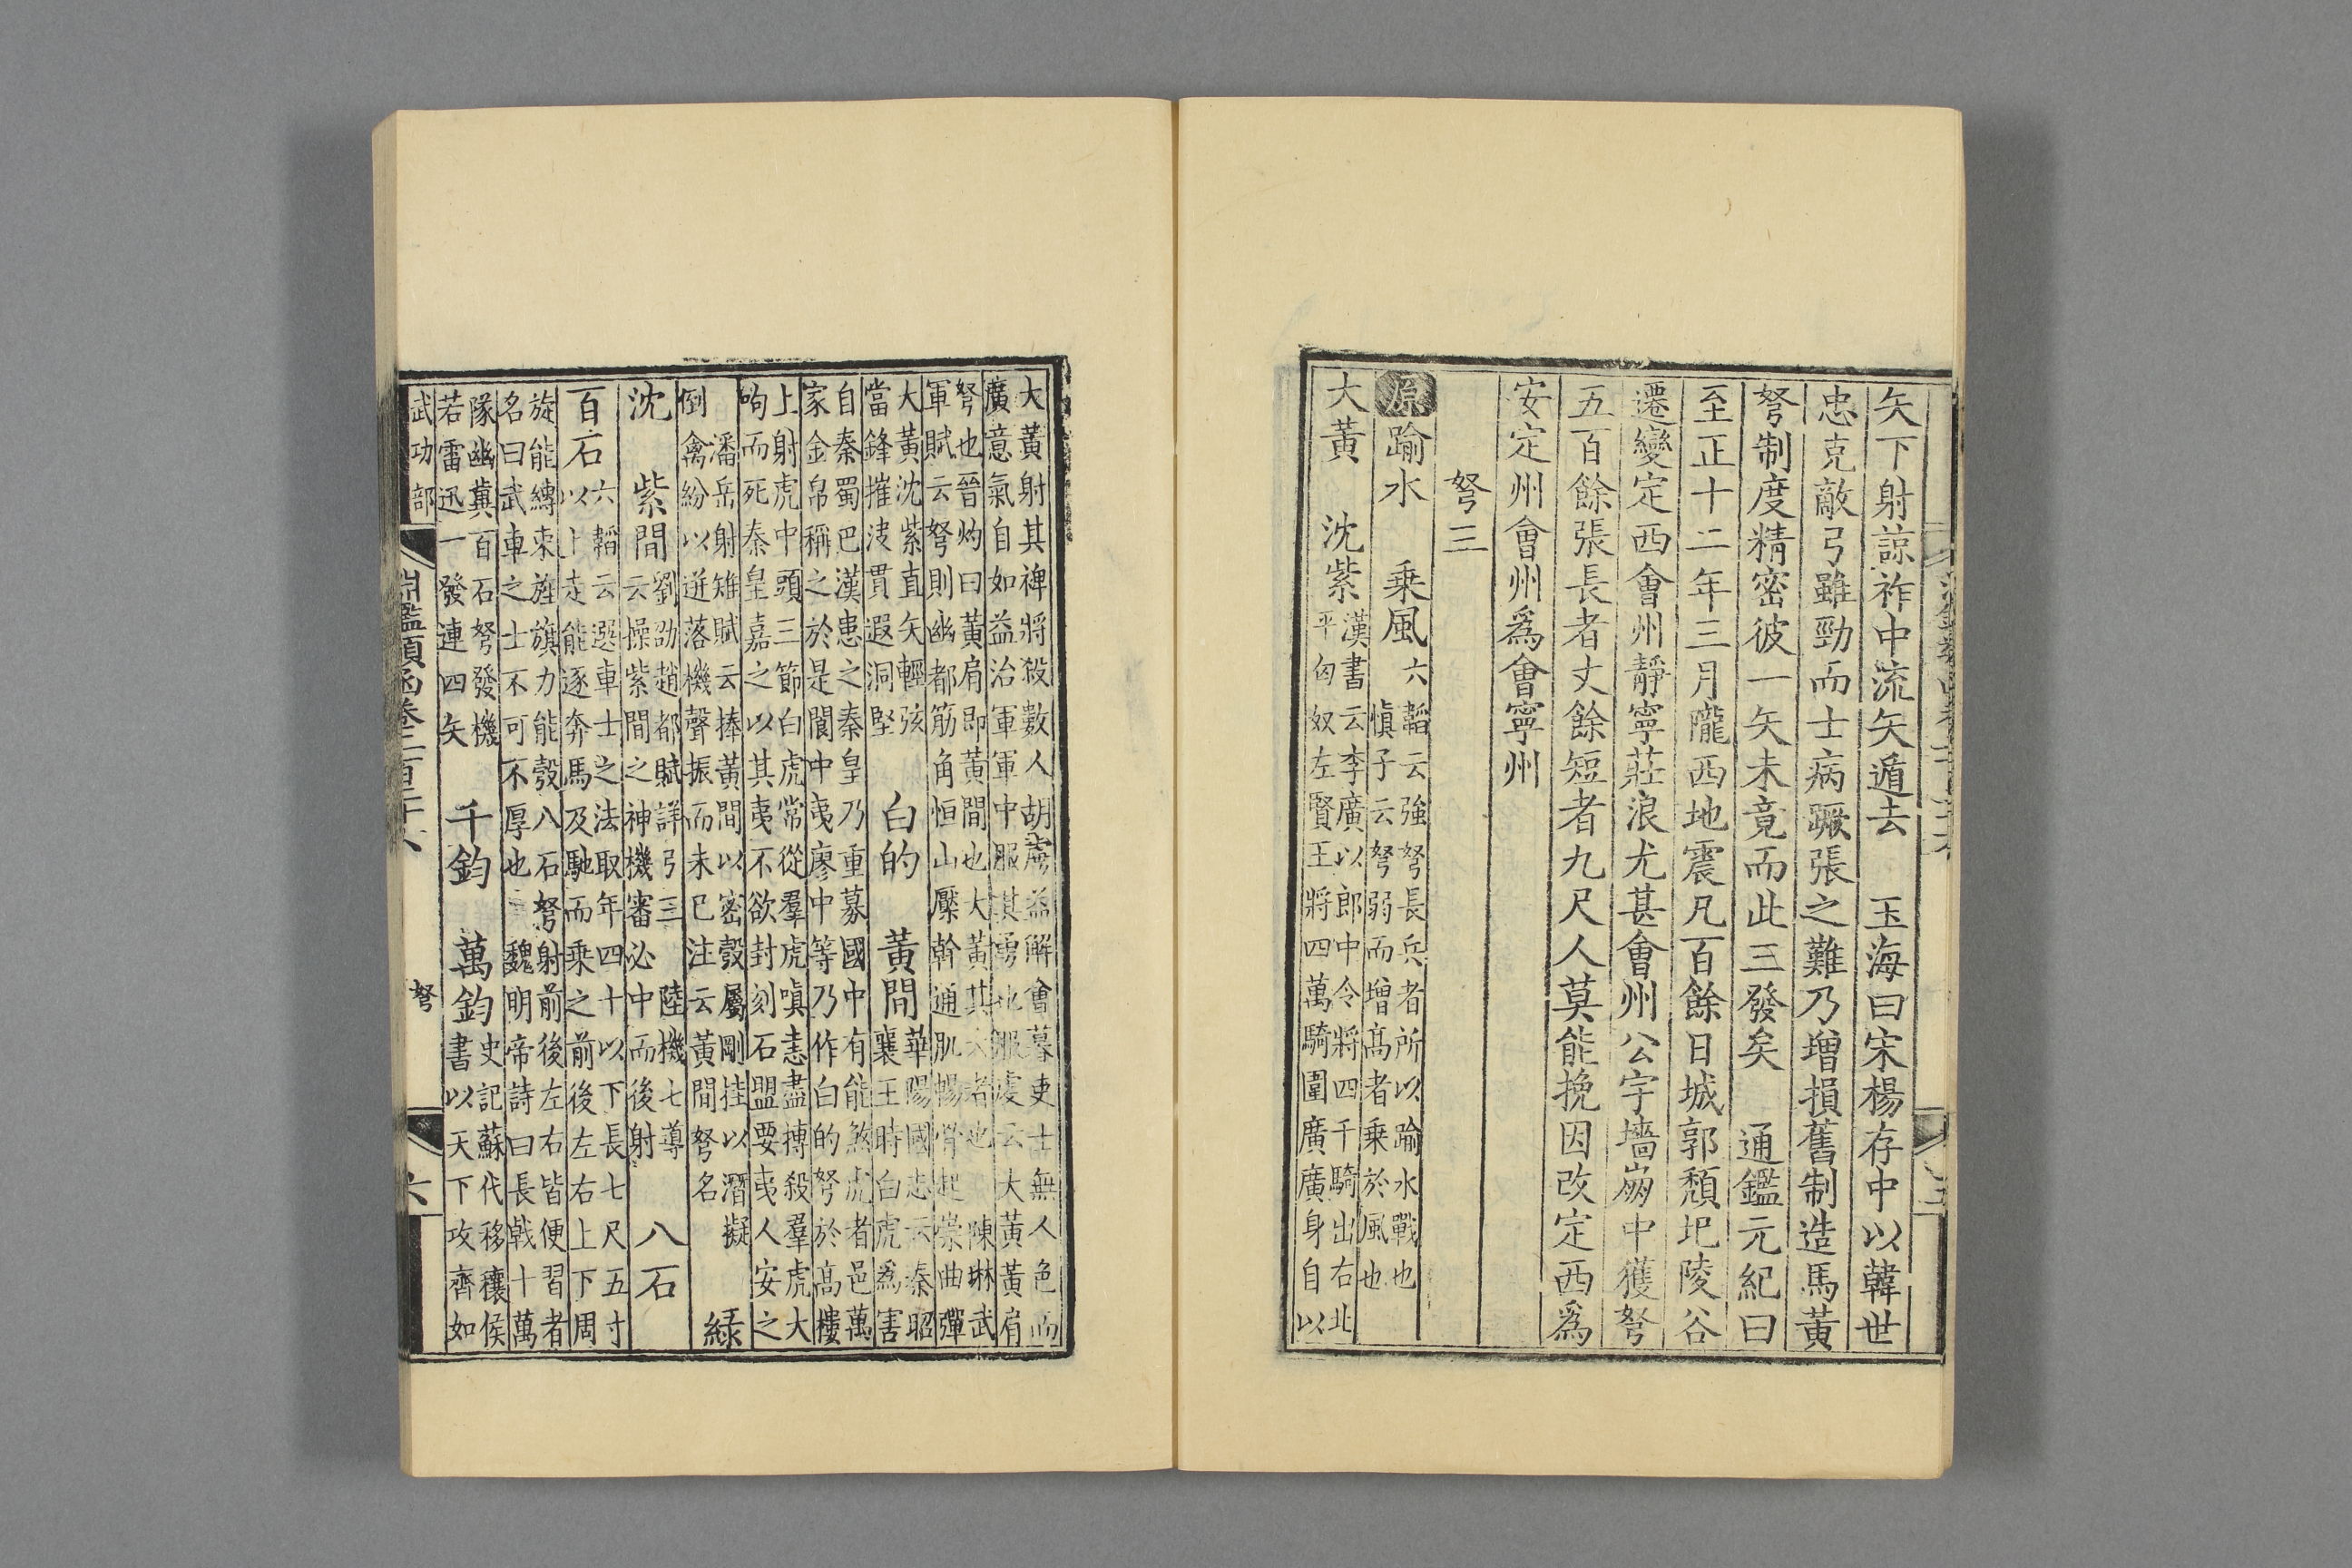 矢下射諒祚中流矢遁去　玉海曰宋楊存中以韓世
忠克敵弓雖勁而士病蹶張之難乃增損舊制造馬黃
弩制度精密彼一矢未竟而此三發矣　通鑑元紀曰
至正十二年三月隴西地震凡百餘日城郭頹圮陵谷
遷變定西會州靜寧莊浪尤甚會州公宇墻崩中獲弩
五百餘張長者丈餘短者九尺人莫能挽因改定西爲
安定州會州爲會寧州
弩三
原踰水　乘風
六韜云強弩長兵者所以踰水戰也
慎子云弩弱而增高者乘於風也
大黃　沈紫
漢書云李廣以郎中令將四千騎出右北
平匈奴左賢王將四萬騎圍廣廣身自以
大黃射其裨將殺數人胡虜益解會暮吏士無人色而
廣意氣自如益治軍軍中服其勇也服虔云大黃黃肩
弩也晉灼曰黃肩即黃間也大黃其大者也　陳琳武
軍賦云弩則幽都筋角恒山檿幹通肌暢骨起崇曲彈
大黃沈紫直矢輕弦
當鋒摧決貫遐洞堅
白的　黃間
華陽國志云秦昭
襄王時白虎爲害
自秦蜀巴漢患之秦皇乃重募國中有能煞虎者邑萬
家金帛稱之於是閬中夷廖中等乃作白的弩於高樓
上射虎中頭三節白虎常從羣虎嗔恚盡摶殺羣虎大
呴而死秦皇嘉之以其夷不欲封刻石盟要夷人安之
潘岳射雉賦云捧黃間以密彀屬剛挂以潛擬
倒禽紛以迸落機聲振而未已注云黃間弩名
綠
沈　紫間
劉劭趙都賦詳弓三
云操紫間之神機審必中而後射
陸機七導
八石
百石
六韜云選車士之法取年四十以下長七尺五寸
以上走能逐奔馬及馳而乘之前後左右上下周
旋能縛束旌旗力能彀八石弩射前後左右皆便習者
名曰武車之士不可不厚也　魏明帝詩曰長戟十萬
隊幽冀百石弩發機
若雷迅一發連四矢
千鈞　萬鈞
史記蘇代移穰侯
書以天下攻齊如
武功部
淵鑑類函卷二百二十八
弩
六